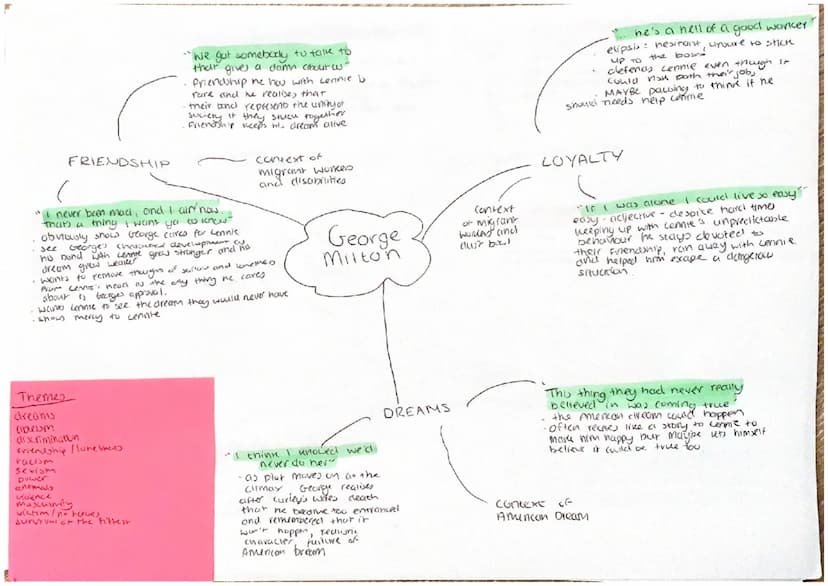 "We got somebody to talk to
that gives a damn about us"
· friendship he has with Lennie is
rare and he realises that
· their bond represent the unity of
society if they stuck together
· Friendship keeps the dream alive
FRIENDSHIP
context of
migrant workers
and disabilities
"I never been mad, and I ain' now.
That's a thing I want ya to know"
· obviously show George cares for Lennie
· see George's character development as
his bond with Lennie grows stronger and his
dream grows weaker
· wants to remove thoughts of sorrow and loneliness
from Lennie's head as the only thing he cares
about is Georges approval.
· wants Lennie to see the dream they would never have
· shows mercy to Lennie
George
Milton
"... he's a hell of a good worker"
· elipsis = hesitant, unsure to stick
up to the boss
· defends Lennie even though it
could risk both their jobs
· MAYBE pausing to think if he
should needs help Lennie
LOYALTY
context
of migrant
workers and
their bond
"If I was alone I could live so easy"
easy - adjective - despite hard times
keeping up with Lennie's unpredictable
behaviour he stays devoted to
their friendship, ran away with Lennie
and helped him escape a dangerous
situation.
DREAMS
"This thing they had never really
believed in was coming true"
· the American dream could happen
· often recites like a story to Lennie to
make him happy but maybe lets himself
believe it could be true too
context of
American Dream
"I think I knowed we'd
never do her"
· as plot moves on at the
climax George realises
after Curley's wife's death
that he became too entranced
and remembered that it
won't happen,
character, failure of
American Dream
Themes
dreams
discrimination
friendship / loneliness
racism
sexism
power
animals
violence
masculinity
victims / no heroes
survival of the fittest